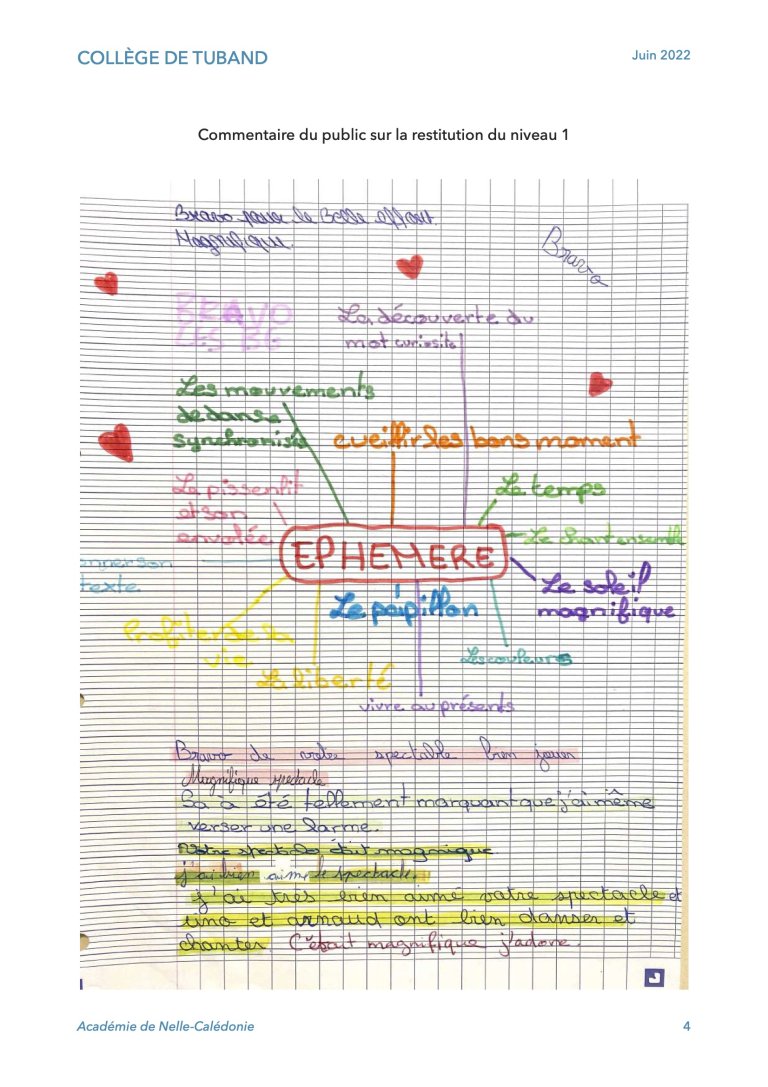 COLLÈGE DE TUBAND
Juin 2022
Commentaire du public sur la restitution du niveau 1
Bravo pour le Belle effort.
Magnifique.
Bravo
BRAVO
LES BG
La découverte du
mot curiosité
Les mouvements
de danse
synchronisés
cueillir les bons moment
Le pissenlit
et son
envolée
Le temps
Le chant ensemble
EPHEMERE
onner son
texte
Le soleil
magnifique
Le papillon
Profiter de sa
vie
Les couleurs
La liberté
vivre au présents
Bravo de votre spectable bien jouer
Magnifique spectacle
Sa a été tellement marquant que j'ai même
verser une larme.
Votre spectacle était magnique.
j'ai bien aimé le spectacle.
j'ai très bien aimé votre spectacle et
uno et arnaud ont bien danser et
chanter. C'était magnifique j'adore.
Académie de Nelle-Calédonie
4